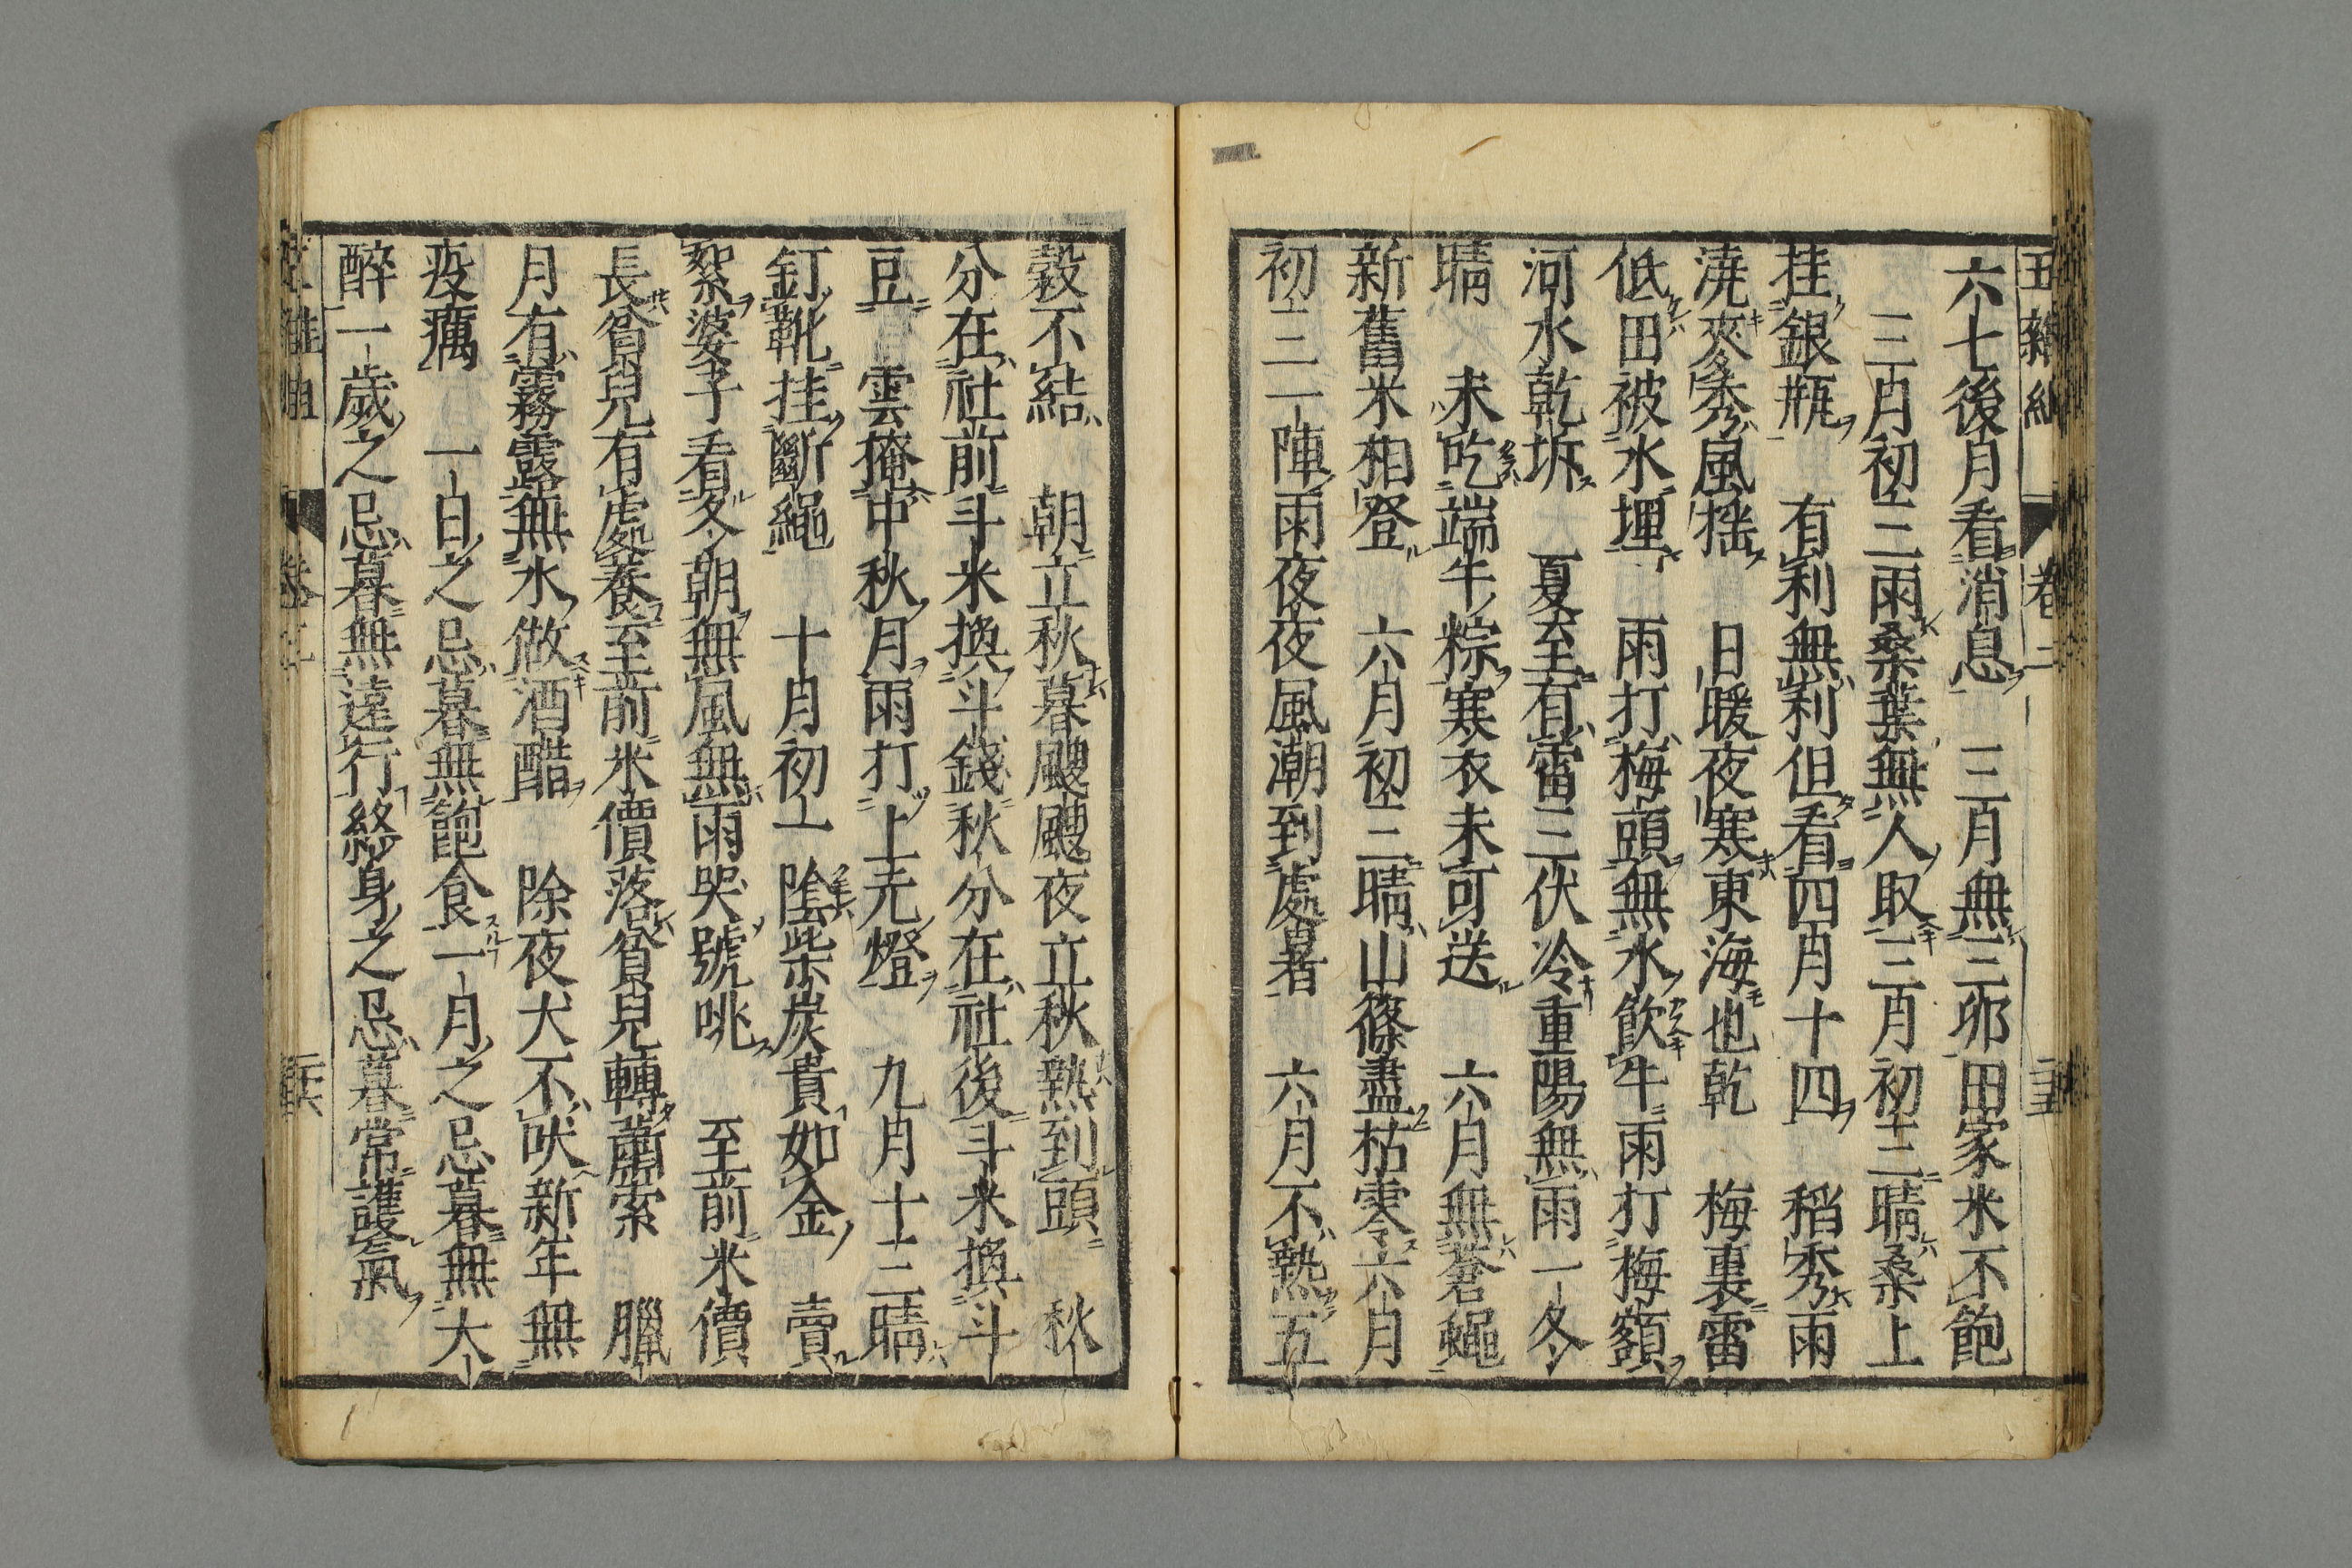 五雜組 卷二 二十五
六七後月看消息 三月無三卯田家米不飽
三月初三雨桑葉無人取三月初三晴桑上
挂銀瓶 有利無利但看四月十四 稻秀雨
澆麥秀風搖 日暖夜寒東海也乾 梅裏雷
低田被水埋 雨打梅頭無水飲牛雨打梅額
河水乾坼 夏至有雷三伏冷重陽無雨一冬
晴 未吃端午粽寒衣未可送 六月無蒼蠅
新舊米相登 六月初三晴山篠盡枯零六月
初三一陣雨夜夜風潮到處暑 六月不熱五
穀不結 朝立秋暮颼颼夜立秋熱到頭 秋
分在社前斗米換斗錢秋分在社後斗米換斗
豆 雲掩中秋月雨打上元燈 九月十二晴
釘靴挂斷繩 十月初一陰柴炭貴如金 賣
絮婆子看冬朝無風無雨哭號咷 至前米價
長貧兒有處養至前米價落貧兒轉蕭索 臘
月有霧露無水做酒醋 除夜犬不吠新年無
疫癘 一日之忌暮無飽食一月之忌暮無大
醉一歲之忌暮無遠行終身之忌暮常護氣
五雜組 卷二